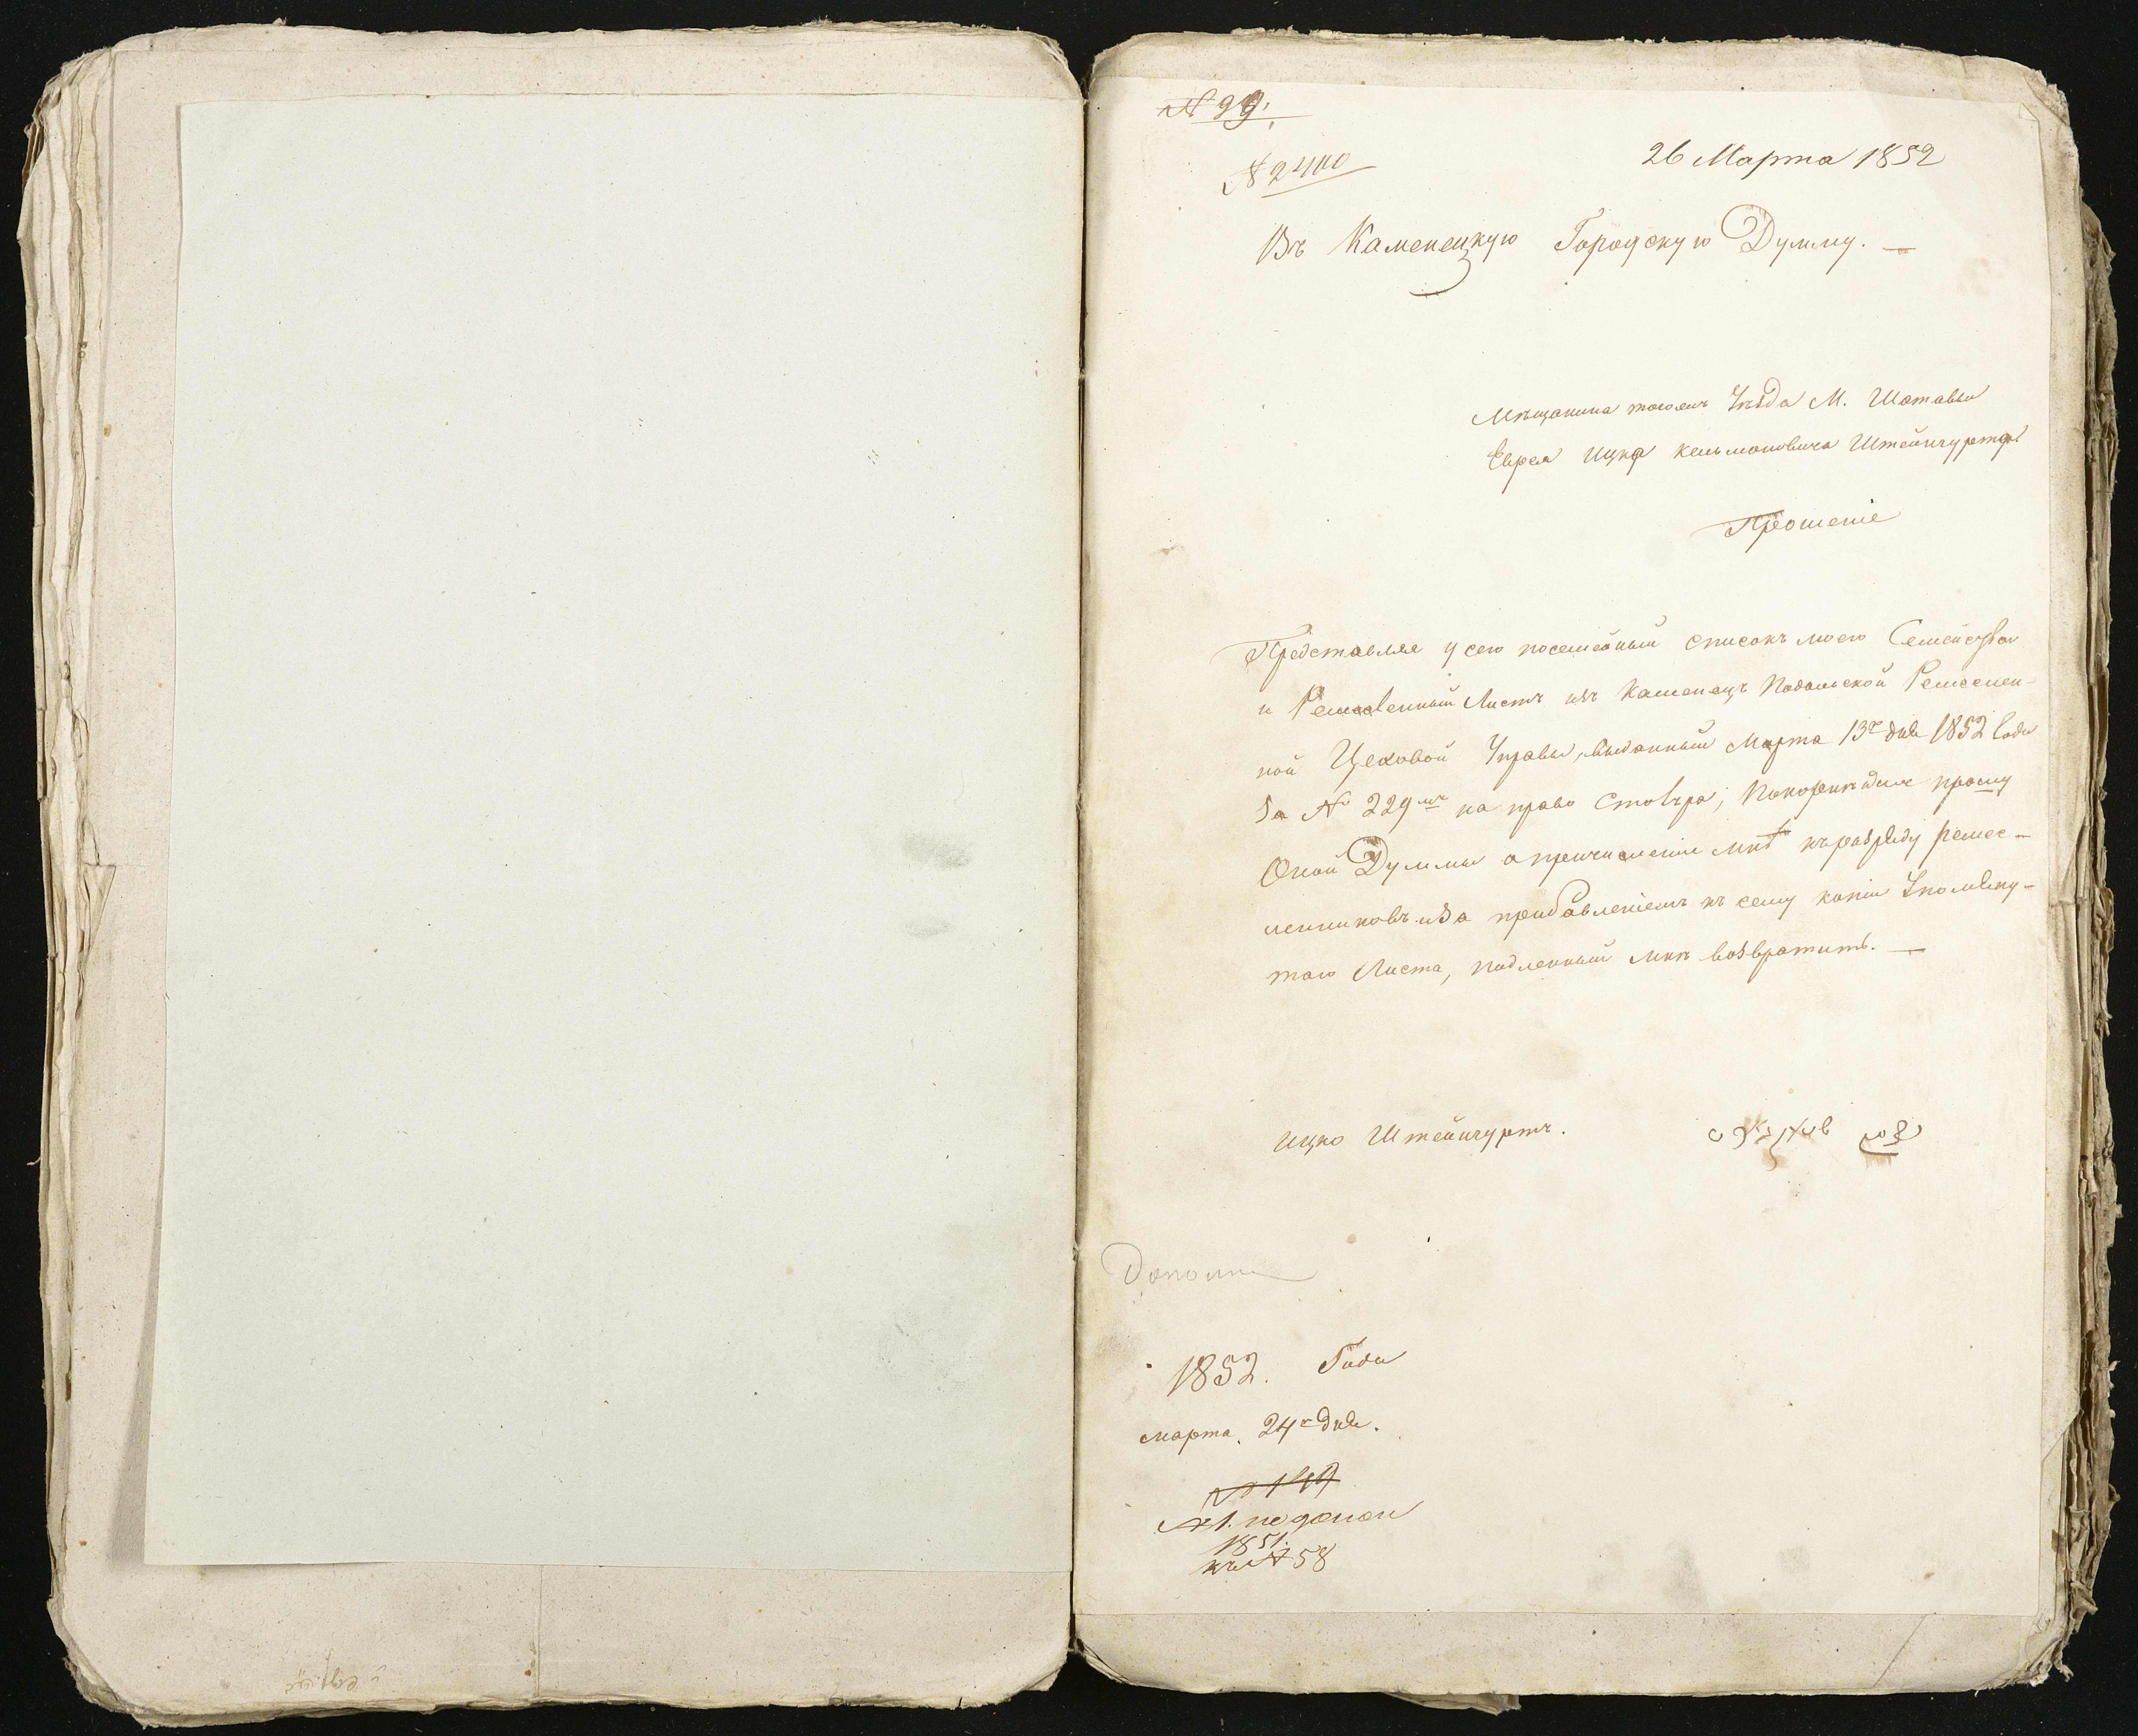 № 99.
№ 2400
26 Марта 1852
Въ Каменецкую Городскую Думму. —
Мѣщанина тогожъ Уѣзда М. Шатавы
Еврея Ицка Кельмановича Штейнгурта
Прошеніе
Представляя у сего посемейный списокъ моего Семейства
и Ремесленный Листъ изъ Каменецъ Подольской Ремеслен-
ной Цеховой Управы, выданный Марта 13го дня 1852 Года
За № 229мъ на право Столяра, Покорнѣйше прошу
Оной Думмы о причисленіи мнѣ къ разряду ремес-
ленниковъ и за прибавленіемъ къ сему копіи Упомяну-
таго Листа, подленный мнѣ возвратить. —
Ицко Штейнгуртъ.
1852. Года
марта. 24го дня.
1851.
къ № 58